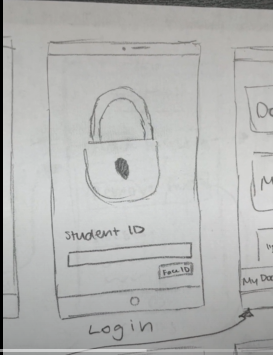 Student ID
Face ID
Login
My Doc